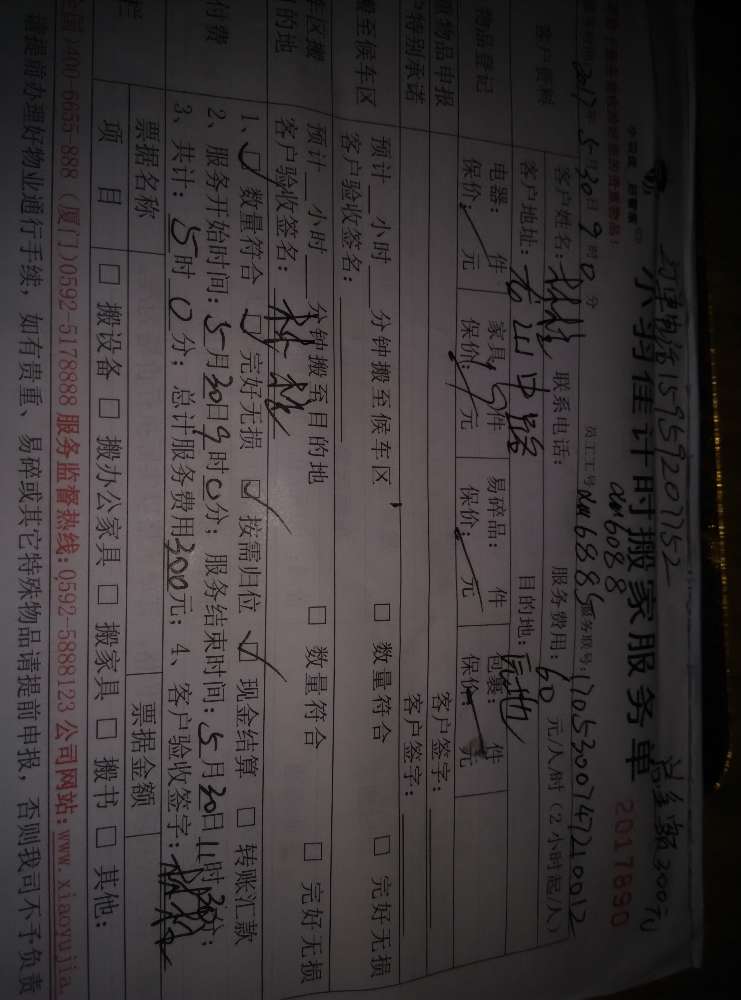 订单电话15959207752 总金额300元
小羽佳计时搬家服务单
2017890
小羽佳 好管家
dm6088
2017年5月30日9时0分
员工工号dm6885 服务联号:1705300747210012
客户资料
客户姓名:林桂 联系电话: 服务费用:60元/人/时(2小时起/人)
客户地址:古山中路 目的地:原地
物品登记
电器: 件 家具:5件 易碎品: 件 包裹: 件
保价: 元 保价: 元 保价: 元 保价: 元
物品申报
客户签字:
特别承诺
客户签字:
搬至候车区
预计 小时 分钟搬至候车区 □数量符合 □完好无损
客户验收签名:
车区搬
的地
预计 小时 分钟搬至目的地 □数量符合 □完好无损
客户验收签名:林桂
付费
1、☑数量符合 ☑完好无损 ☑按需归位 ☑现金结算 □转账汇款
2、服务开始时间:5月30日9时0分; 服务结束时间:5月30日11时30分;
3、共计:5时0分;总计服务费用300元;4、客户验收签字:
栏
票据名称 票据金额
项目 □搬设备 □搬办公家具 □搬家具 □搬书 □其他:
全国)400-6655-888 (厦门)0592-5178888 服务监督热线:0592-5888123 公司网站:www.xiaoyujia.
请提前办理好物业通行手续,如有贵重、易碎或其它特殊物品请提前申报,否则我司不予负责